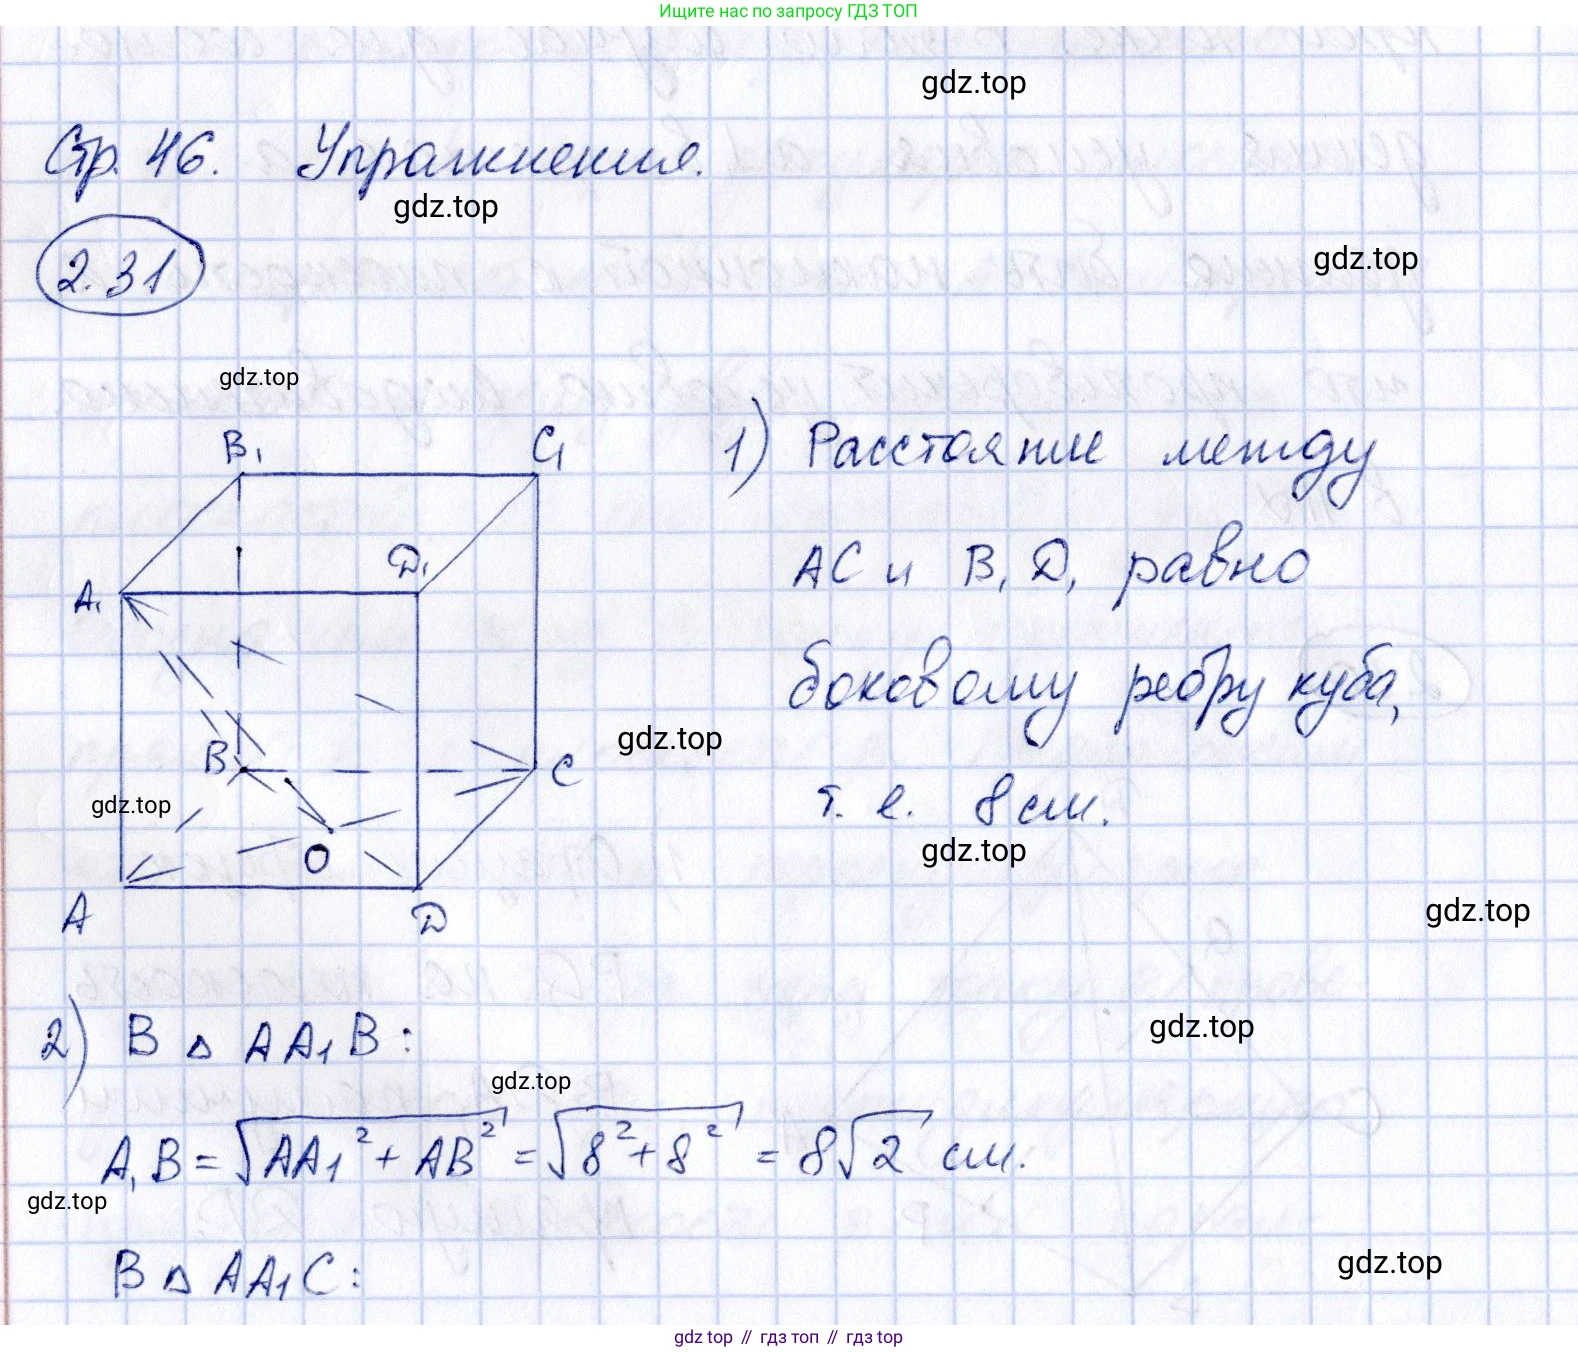 Ищите нас по запросу ГДЗ ТОП
gdz.top
Стр. 46. Упражнения.
gdz.top
2.31
gdz.top
gdz.top
B₁ C₁
1) Расстояние между
A₁ D₁
AC и B₁D₁ равно
боковому ребру куба,
gdz.top
B C
gdz.top
т. е. 8 см.
O
gdz.top
A D
gdz.top
2) В △ AA₁B:
gdz.top
gdz.top
A₁B = √(AA₁² + AB²) = √(8² + 8²) = 8√2 см.
gdz.top
В △ AA₁C:
gdz.top
gdz.top // гдз топ // гдз top